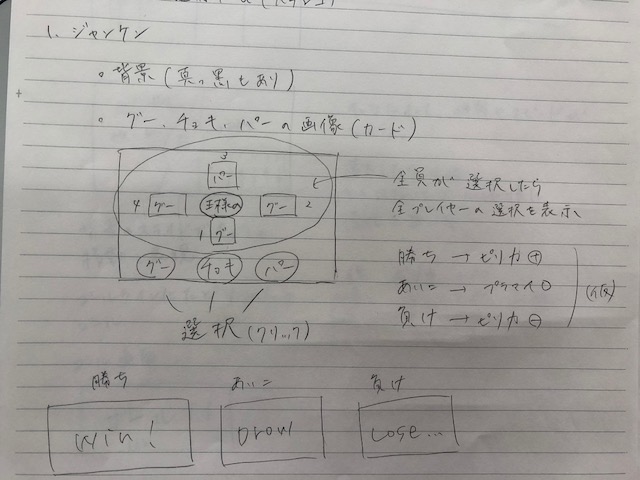 1. ジャンケン
。背景(真っ黒もあり)
。グー、チョキ、パーの画像(カード)
3
パー
4 グー 王様の グー 2
1 グー
グー チョキ パー
選択(クリック)
全員が選択したら
全プレイヤーの選択を表示、
勝ち → ピリカ⊕
あいこ → プラマイ0
負け → ピリカ⊖
(仮)
勝ち あいこ 負け
win! Drow Lose...